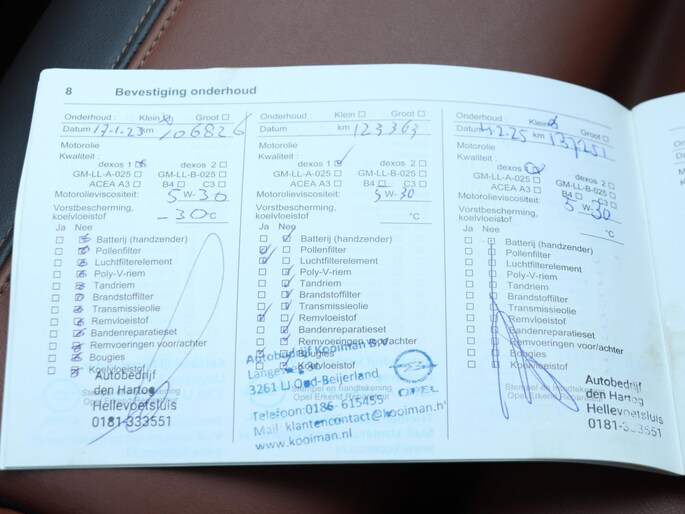 8 Bevestiging onderhoud
Onderhoud : Klein Groot
Datum 17-1-23 km 106826
Motorolie
Kwaliteit :
dexos 1 dexos 2
GM-LL-A-025 GM-LL-B-025
ACEA A3 B4 C3
Motorolieviscositeit: 5 W-30
Vorstbescherming,
koelvloeistof -30°C
Ja Nee
Batterij (handzender)
Pollenfilter
Luchtfilterelement
Poly-V-riem
Tandriem
Brandstoffilter
Transmissieolie
Remvloeistof
Bandenreparatieset
Remvoeringen voor/achter
Bougies
Koelvloeistof
Stempel en handtekening
Opel Erkend
Autobedrijf
den Hartog
Hellevoetsluis
0181-333551
Onderhoud : Klein Groot
Datum km 123363
Motorolie
Kwaliteit :
dexos 1 dexos 2
GM-LL-A-025 GM-LL-B-025
ACEA A3 B4 C3
Motorolieviscositeit: 5 W-30
Vorstbescherming,
koelvloeistof °C
Ja Nee
Batterij (handzender)
Pollenfilter
Luchtfilterelement
Poly-V-riem
Tandriem
Brandstoffilter
Transmissieolie
Remvloeistof
Bandenreparatieset
Remvoeringen voor/achter
Bougies
Koelvloeistof
Autobedrijf Kooiman B.V.
3261 LJ Oud-Beijerland
Telefoon:0186-615455
Mail: klantencontact@kooiman.n
www.kooiman.nl
OPEL
Onderhoud : Klein Groot
Datum km 137251
Motorolie
Kwaliteit :
dexos dexos 2
GM-LL-A-025 GM-LL-B-025
ACEA A3 B4 C3
Motorolieviscositeit: 5 W-30
Vorstbescherming,
koelvloeistof °C
Ja Nee
Batterij (handzender)
Pollenfilter
Luchtfilterelement
Poly-V-riem
Tandriem
Brandstoffilter
Transmissieolie
Remvloeistof
Bandenreparatieset
Remvoeringen voor/achter
Bougies
Koelvloeistof
Stempel en handtekening
Opel Erkend
Autobedrijf
den Hartog
Hellevoetsluis
0181-333551